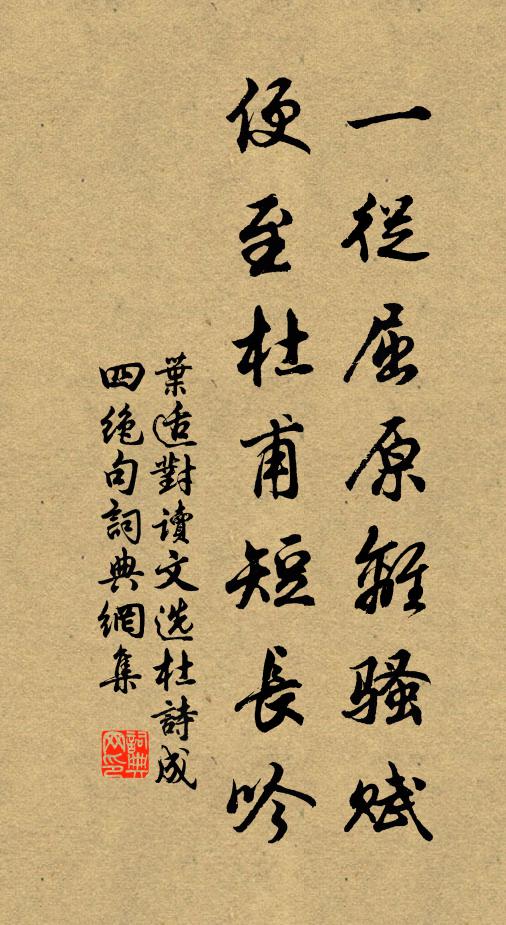 一從屈原離騷赋
便至杜甫短長吟
葉适對讀文选杜詩成
四絶句詞典網集
詞典
网印